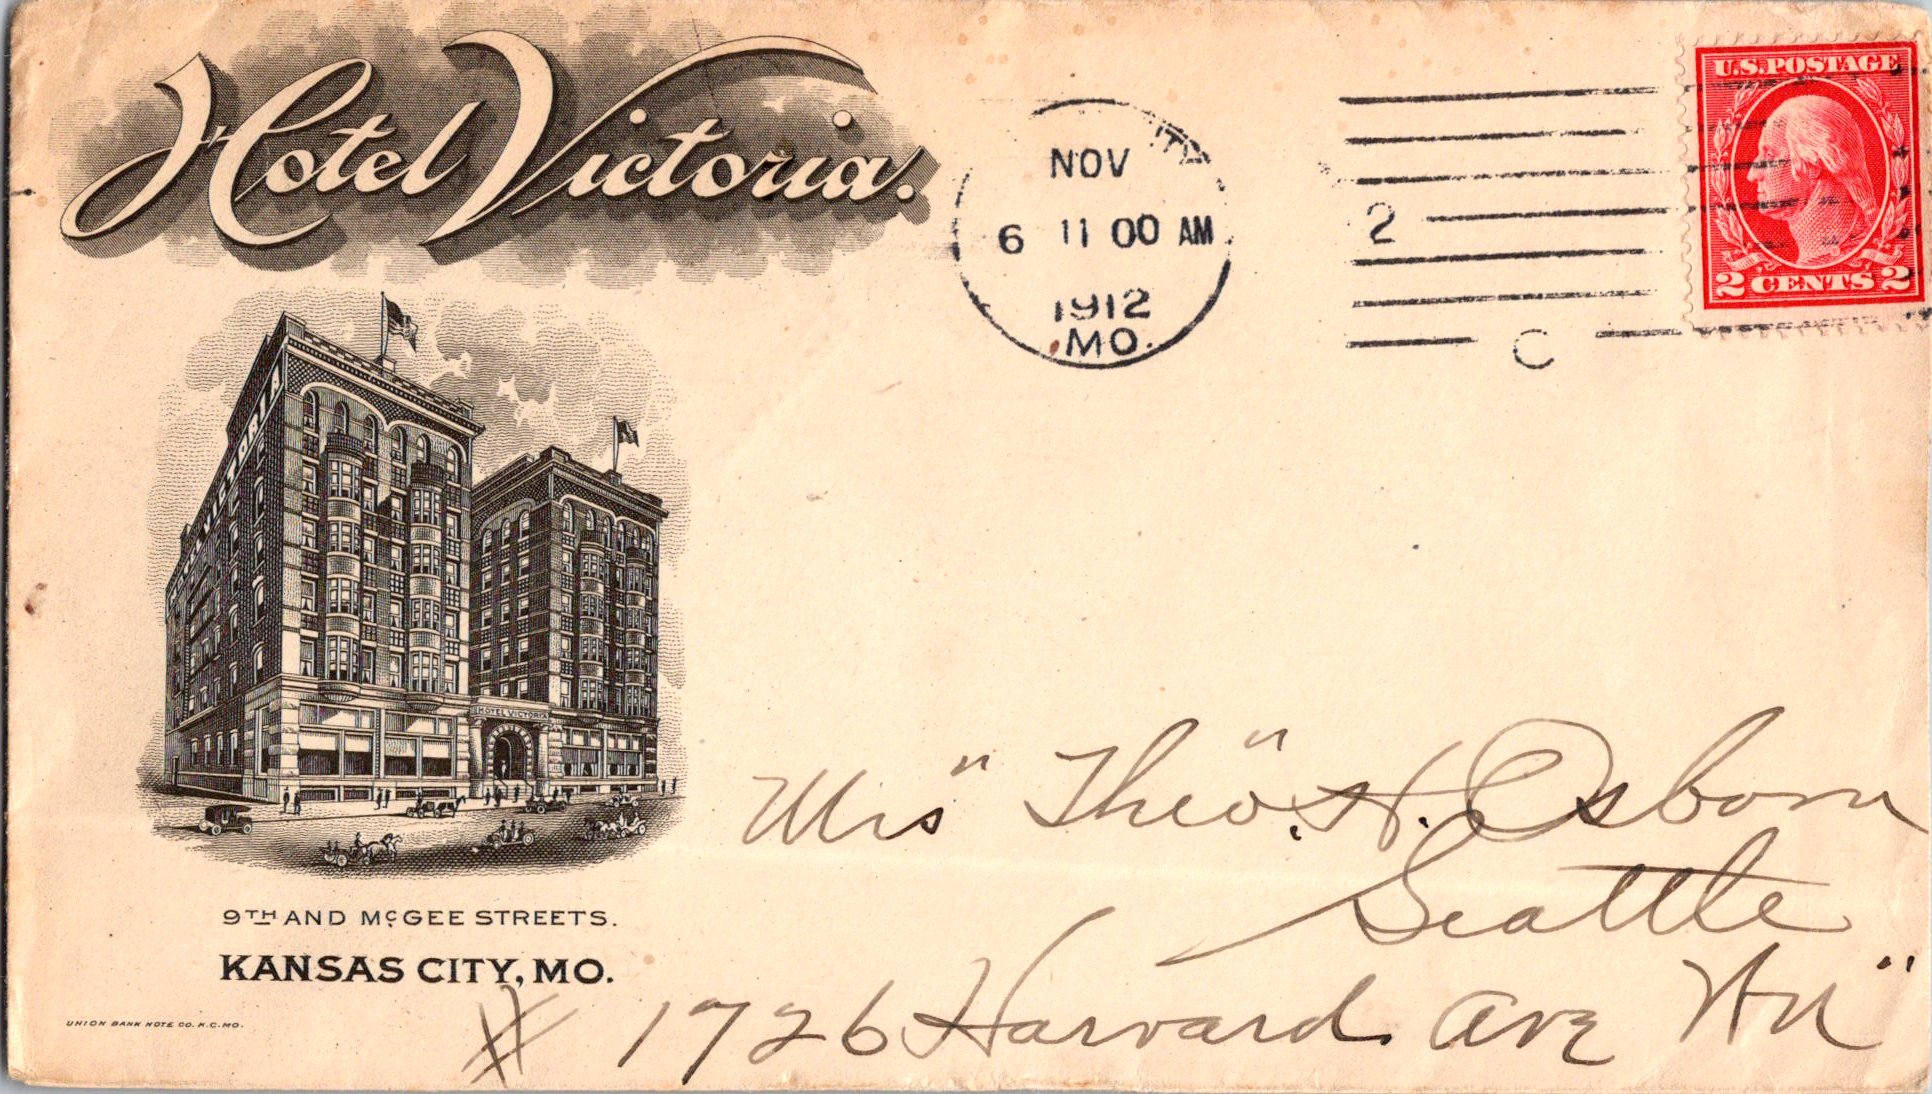 Hotel Victoria.
TY
NOV
6 11 00 AM
1912
MO.
2
C
U.S.POSTAGE
2 CENTS 2
VICTORIA
HOTEL VICTORIA
9TH AND McGEE STREETS.
KANSAS CITY, MO.
UNION BANK NOTE CO. K.C. MO.
Mrs "Theo". H. Osborn
Seattle
# 1726 Harvard Ave Wn